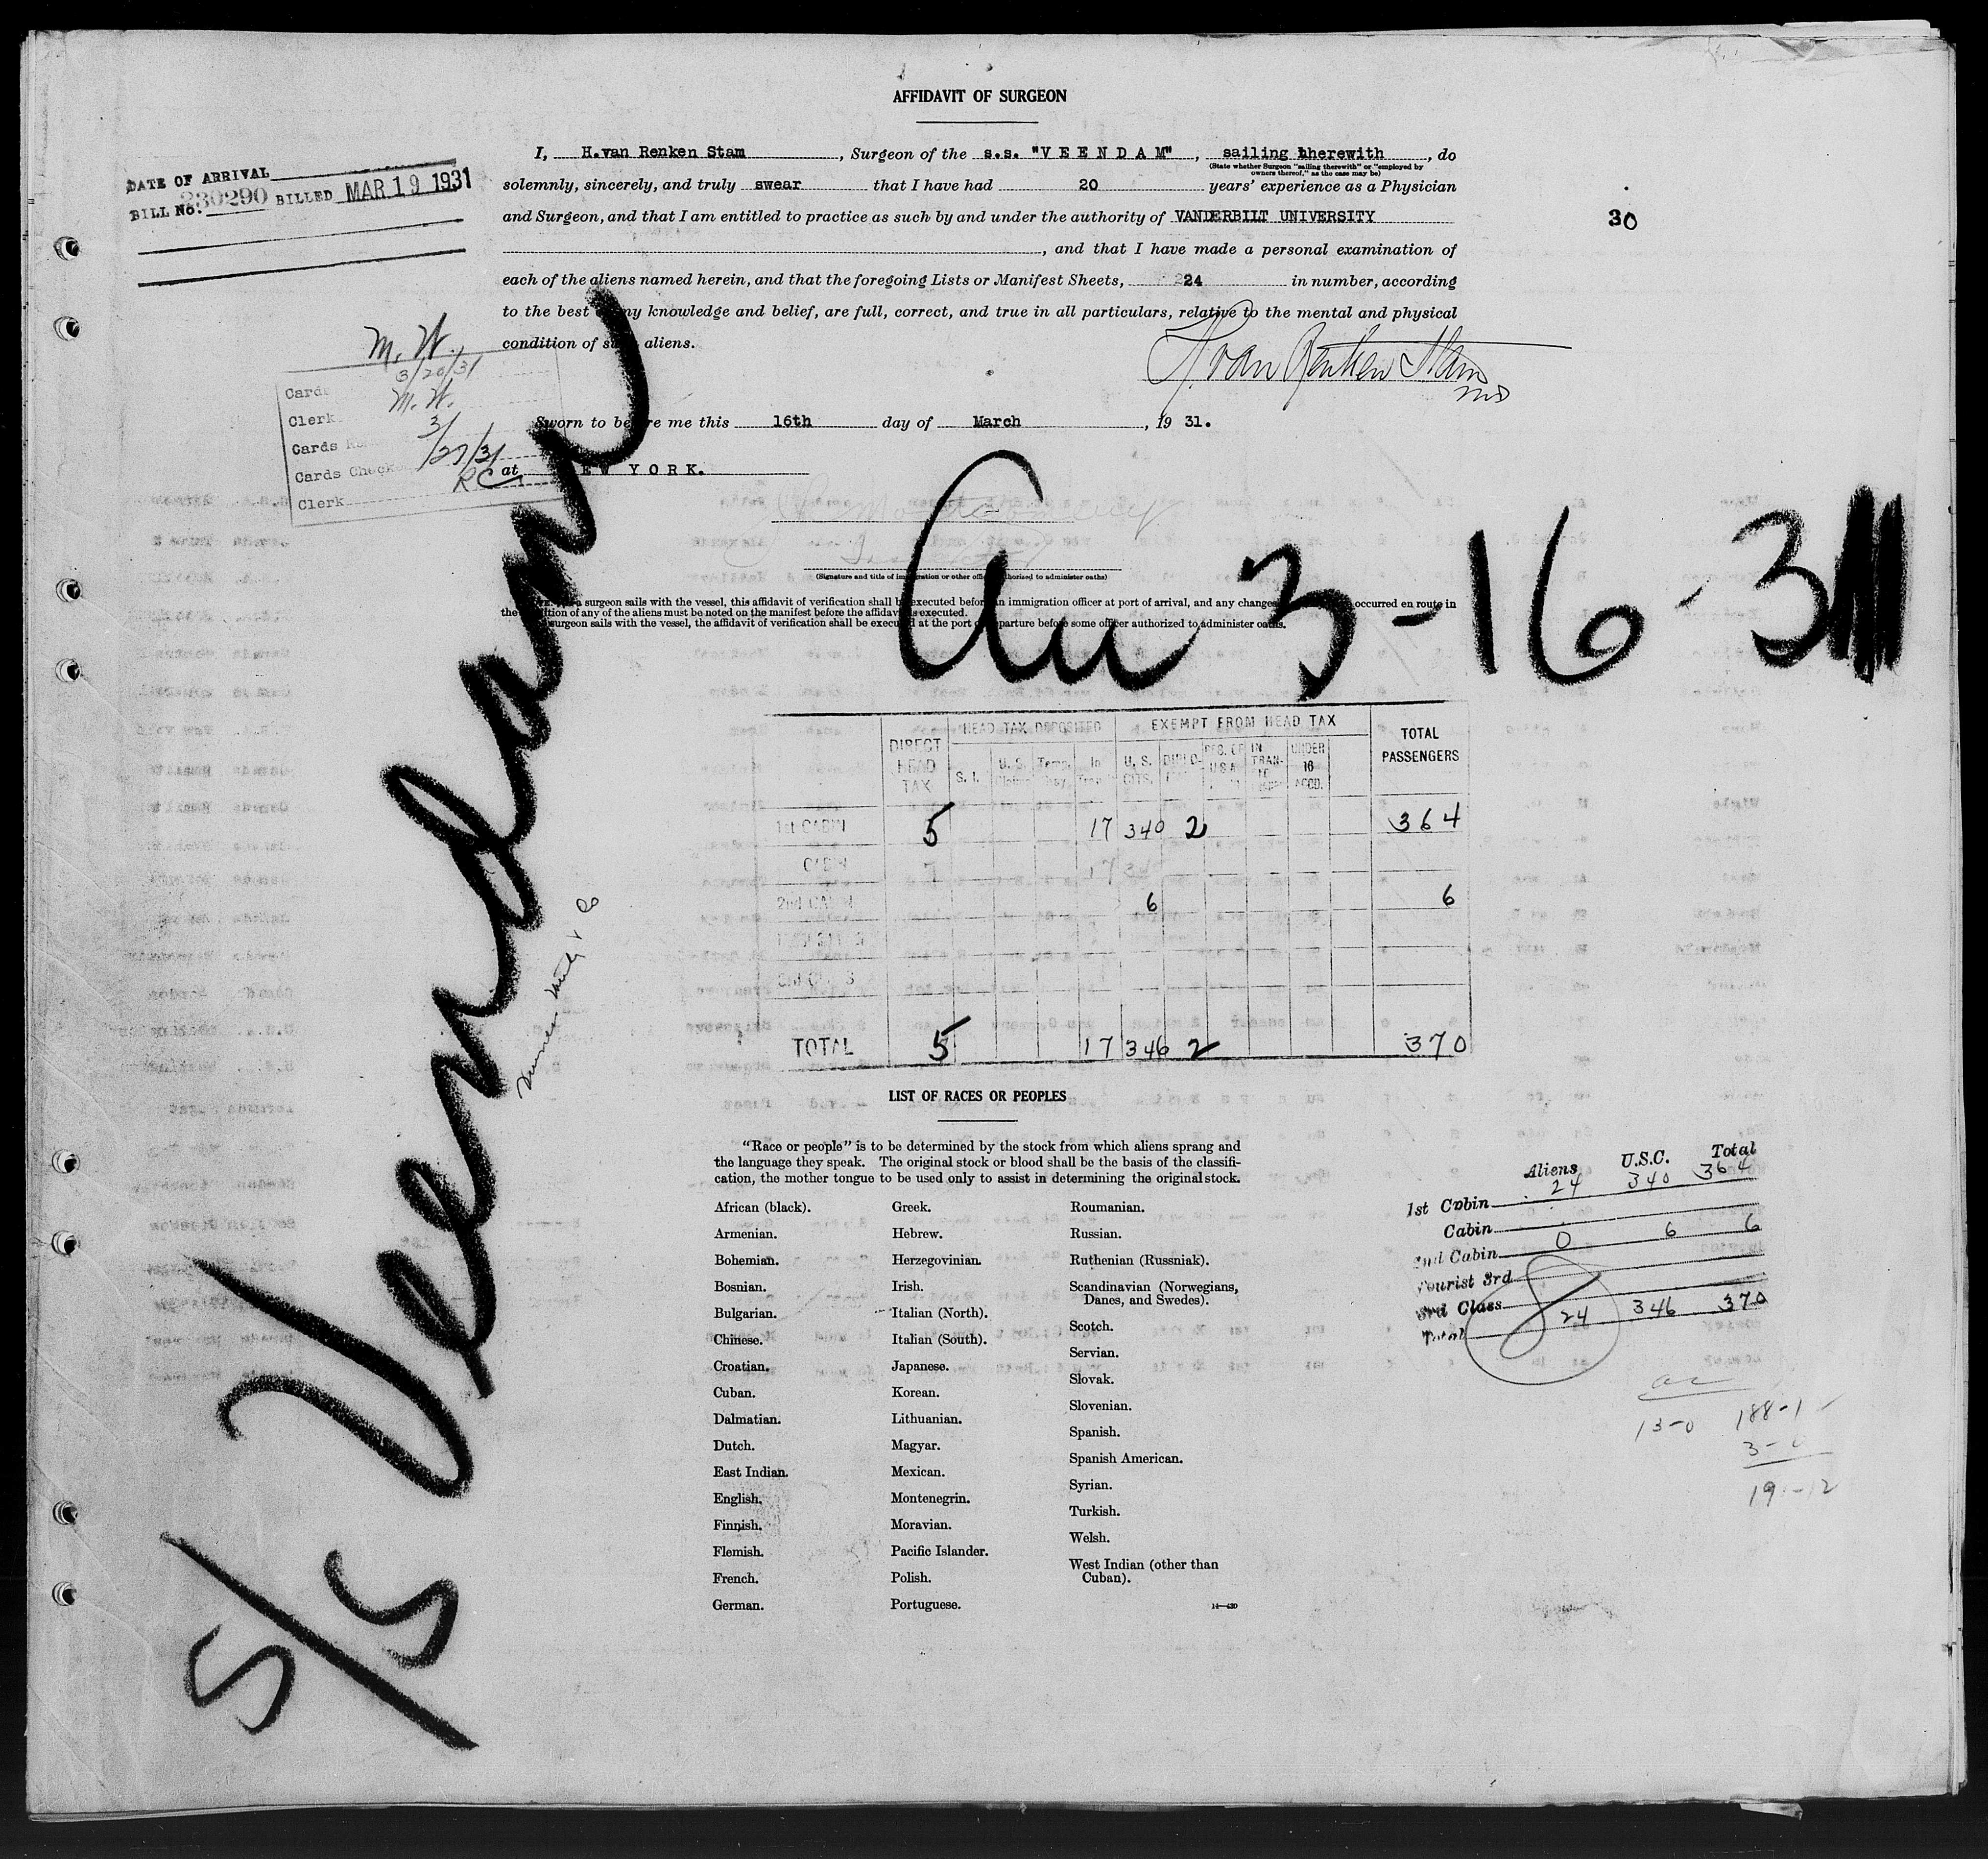 AFFIDAVIT OF SURGEON
DATE OF ARRIVAL
BILL No. 230290 BILLED MAR 19 1931
I, H.van Renken Stam, Surgeon of the s.s. "V E E N D A M", sailing therewith, do
(State whether Surgeon "sailing therewith" or "employed by
owners thereof," as the case may be)
solemnly, sincerely, and truly swear that I have had 20 years' experience as a Physician
and Surgeon, and that I am entitled to practice as such by and under the authority of VANDERBILT UNIVERSITY
30
, and that I have made a personal examination of
each of the aliens named herein, and that the foregoing Lists or Manifest Sheets, 24 in number, according
to the best of my knowledge and belief, are full, correct, and true in all particulars, relative to the mental and physical
condition of such aliens.
H. van Renken Stam
MD
M. W.
3/20/31
Cards
M. W.
Clerk
3/27/31
Cards Checked
RC
Clerk
Sworn to before me this 16th day of March, 19 31.
at NEW YORK.
(Signature and title of immigration or other officer authorized to administer oaths)
surgeon sails with the vessel, this affidavit of verification shall be executed before an immigration officer at port of arrival, and any changes occurred en route in
the condition of any of the aliens must be noted on the manifest before the affidavit is executed.
surgeon sails with the vessel, the affidavit of verification shall be executed at the port of departure before some officer authorized to administer oaths.
S/S Veendam
Arr 3-16-31
DIRECT HEAD TAX
HEAD TAX DEPOSITED
EXEMPT FROM HEAD TAX
TOTAL PASSENGERS
S. I.
U. S.
Temp.
In
U. S. CITS.
DIPLO-
RES. OF U S A
IN TRAN-
UNDER 16 ACCD.
1st CABIN 5 17 340 2 364
CABIN 17 340
2nd CABIN 6 6
TOTAL 5 17 346 2 370
LIST OF RACES OR PEOPLES
"Race or people" is to be determined by the stock from which aliens sprang and
the language they speak. The original stock or blood shall be the basis of the classifi-
cation, the mother tongue to be used only to assist in determining the original stock.
African (black).
Armenian.
Bohemian.
Bosnian.
Bulgarian.
Chinese.
Croatian.
Cuban.
Dalmatian.
Dutch.
East Indian.
English.
Finnish.
Flemish.
French.
German.
Greek.
Hebrew.
Herzegovinian.
Irish.
Italian (North).
Italian (South).
Japanese.
Korean.
Lithuanian.
Magyar.
Mexican.
Montenegrin.
Moravian.
Pacific Islander.
Polish.
Portuguese.
Roumanian.
Russian.
Ruthenian (Russniak).
Scandinavian (Norwegians,
Danes, and Swedes).
Scotch.
Servian.
Slovak.
Slovenian.
Spanish.
Spanish American.
Syrian.
Turkish.
Welsh.
West Indian (other than
Cuban).
14—430
Aliens U.S.C. Total
1st Cabin 24 340 364
Cabin
2nd Cabin 0 6 6
Tourist 3rd
3rd Class
Total 24 346 370
13-0 188-1
3-0